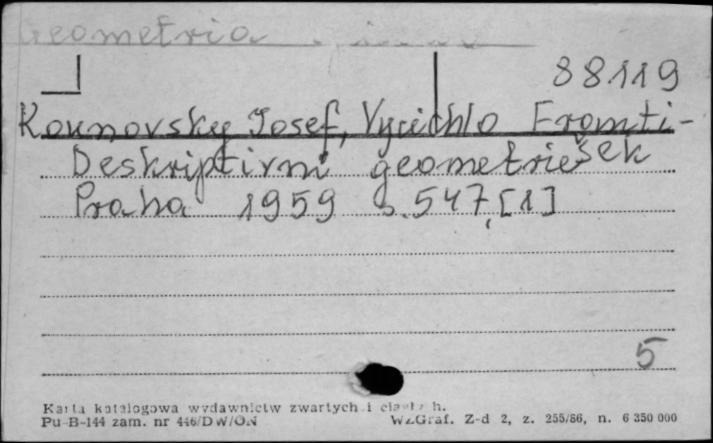 Geometria
88119
Kounovsky Josef, Vyčichlo Franti-
šek
Deskriptivni geometrie
Praha 1959 s. 547, [1]
5
Karta katalogowa wydawnictw zwartych i
Pu-B-144 zam. nr 446/DW/ON WZGraf. Z-d 2, z. 255/86, n. 6 350 000